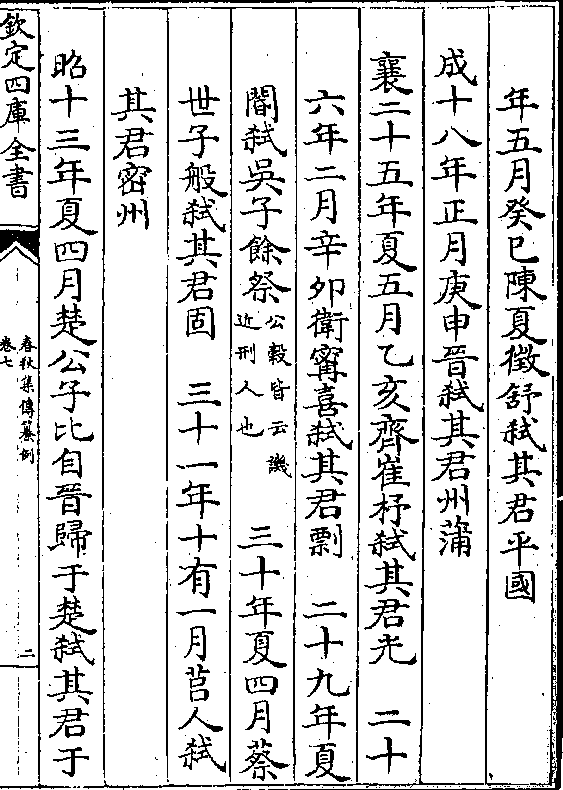 年五月癸巳陳夏徵舒弑其君平國
成十八年正月庚申晉弑其君州蒲
襄二十五年夏五月乙亥齊崔杼弑其君光　二十
六年二月辛卯衛甯喜弑其君剽　二十九年夏
閽弑吳子餘祭公穀皆云譏近刑人也　三十年夏四月蔡
世子般弑其君固　三十一年十有一月莒人弑
其君密州
昭十三年夏四月楚公子比自晉歸于楚弑其君于
欽定四庫全書
春秋集傳纂例
卷七
二